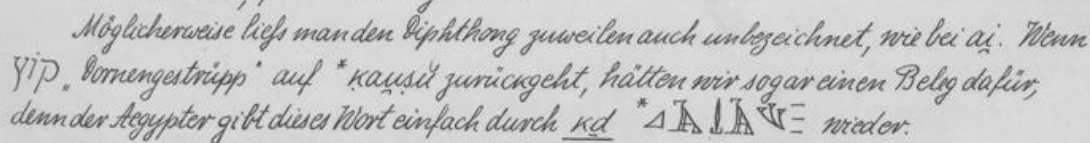 Möglicherweise ließ man den Diphthong zuweilen auch unbezeichnet, wie bei ai̯. Wenn
קוֹץ „Dornengestrüpp“ auf *ḳau̯ṣu̯ zurückgeht, hätten wir sogar einen Beleg dafür,
denn der Aegypter gibt dieses Wort einfach durch ḳḏ * wieder.